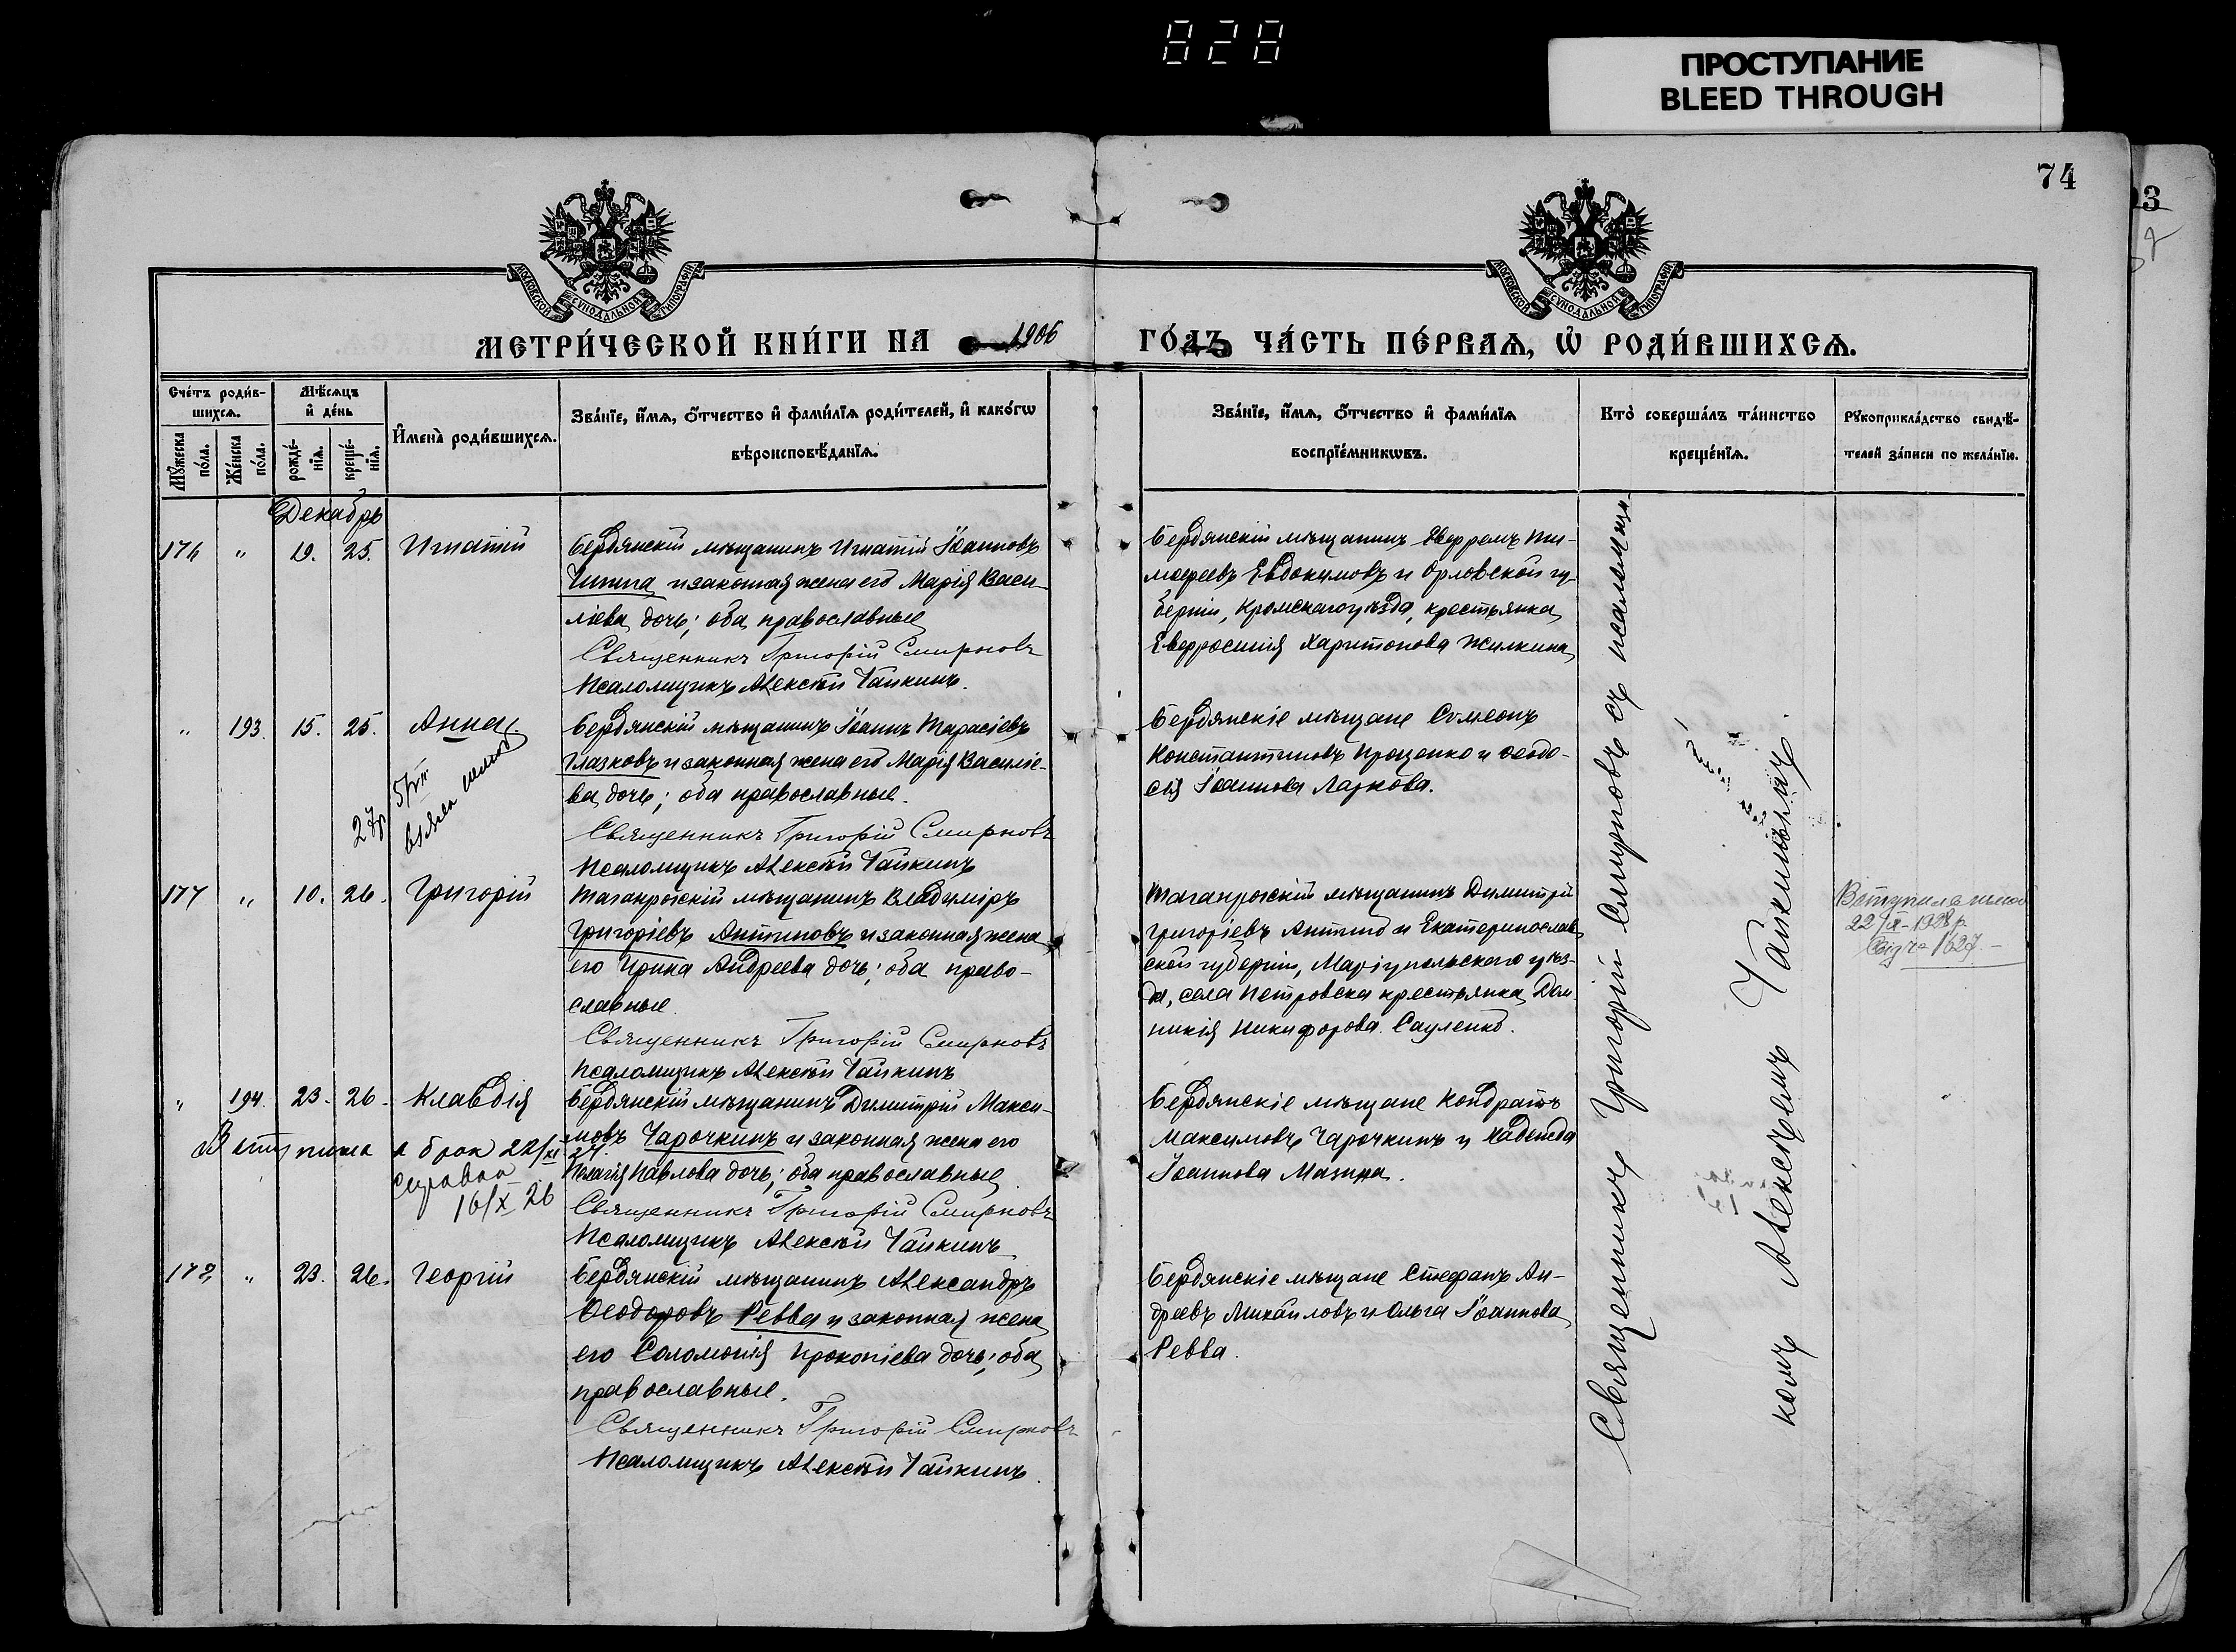 828
ПРОСТУПАНИЕ
BLEED THROUGH
74
МОСКОВСКОЙ СѴНОДАЛЬНОЙ ТИПОГРАФІИ
МОСКОВСКОЙ СѴНОДАЛЬНОЙ ТИПОГРАФІИ
МЕТРИ́ЧЕСКОЙ КНИ́ГИ НА 1906
ГО́ДЪ ЧА́СТЬ ПЕ́РВАѦ, Ѡ҆ РОДИ́ВШИХСѦ.
Сче́тъ роди́в-
шихсѧ.
Мꙋжеска по́ла.
Же́нска по́ла.
Мѣ́сѧцъ
и҆ де́нь
рожде́-
нїѧ.
креще́-
нїѧ.
И҆мена̀ роди́вшихсѧ.
Зва́нїе, и҆́мѧ, ѻ҆́тчество и҆ фами́лїѧ роди́телей, и҆ како́гѡ
вѣроисповѣ́данїѧ.
Зва́нїе, и҆́мѧ, ѻ҆́тчество и҆ фами́лїѧ
воспрїе́мникѡвъ.
Кто̀ соверша́лъ та́инство
креще́нїѧ.
Рꙋкоприкла́дство свидѣ́-
телей за́писи по жела́нїю.
Декабрь
176 " 19. 25. Игнатій
Бердянскій мѣщанинъ Игнатій Іоанновъ
и законная жена его Марія Васи-
ліева дочь; оба православные
Священникъ Григорій Смирновъ
Псаломщикъ Алексѣй Чайкинъ.
Бердянскій мѣщанинъ Ефремъ Ти-
моѳеевъ Евдокимовъ и Орловской гу-
берніи, Кромскаго уѣзда, крестьянка
Евфросинія Харитонова Жилкина
" 193. 15. 25. Анна.
Бердянскій мѣщанинъ Іоаннъ Тарасіевъ
Глазковъ и законная жена его Марія Василіе-
ва дочь; оба православные.
Священникъ Григорій Смирновъ
Псаломщикъ Алексѣй Чайкинъ
Бердянскіе мѣщане Симеонъ
Константиновъ Проценко и Ѳеодо-
сія Іоаннова Ларкова.
177 " 10. 26. Григорій
Таганрогскій мѣщанинъ Владиміръ
Григоріевъ Антиповъ и законная жена
его Ирина Андреева дочь; оба право-
славные.
Священникъ Григорій Смирновъ
Псаломщикъ Алексѣй Чайкинъ
Таганрогскій мѣщанинъ Димитрій
Григоріевъ и Екатеринослав
ской губерніи, Маріупольскаго уѣз-
да, села Петровска крестьянка Дом
никія Никифорова Сауленко.
22/ 1928 р.
" 194. 23. 26. Клавдія
Бердянскій мѣщанинъ Димитрій Макси-
мовъ Чарочкинъ и законная жена его
Павлова дочь; оба православные
Священникъ Григорій Смирновъ
Псаломщикъ Алексѣй Чайкинъ
Вступила в брак 22/XI
справка
16/X 26
Бердянскіе мѣщане Кондратъ
Максимовъ Чарочкинъ и Надежда
Іоаннова Мазина.
178 " 23. 26. Георгій
Бердянскій мѣщанинъ Александръ
Ѳеодоровъ Ревва и законная жена
его Соломонія Прокопіева дочь; оба
православные.
Священникъ Григорій Смирновъ
Псаломщикъ Алексѣй Чайкинъ.
Бердянскіе мѣщане Стефанъ Ан-
дреевъ Михайловъ и Ольга Іоаннова
Ревва.
Священникъ Григорій Смирновъ съ псаломщи-
комъ Алексѣемъ Чайкинымъ.